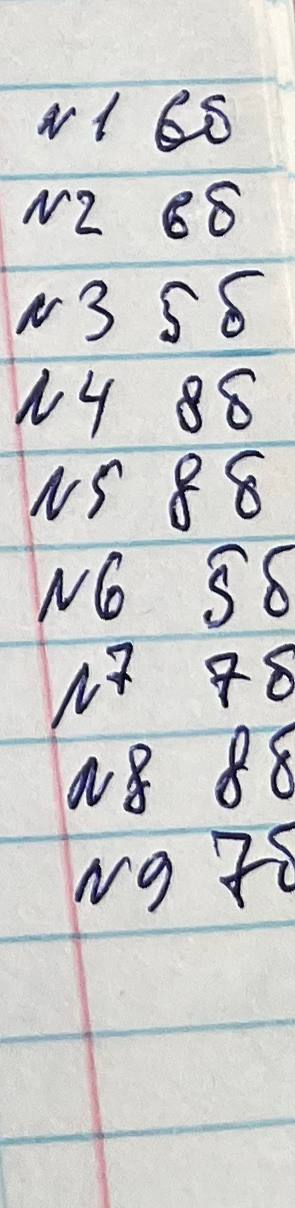 N1 6б
N2 6б
N3 5б
N4 8б
N5 8б
N6 5б
N7 7б
N8 8б
N9 7б